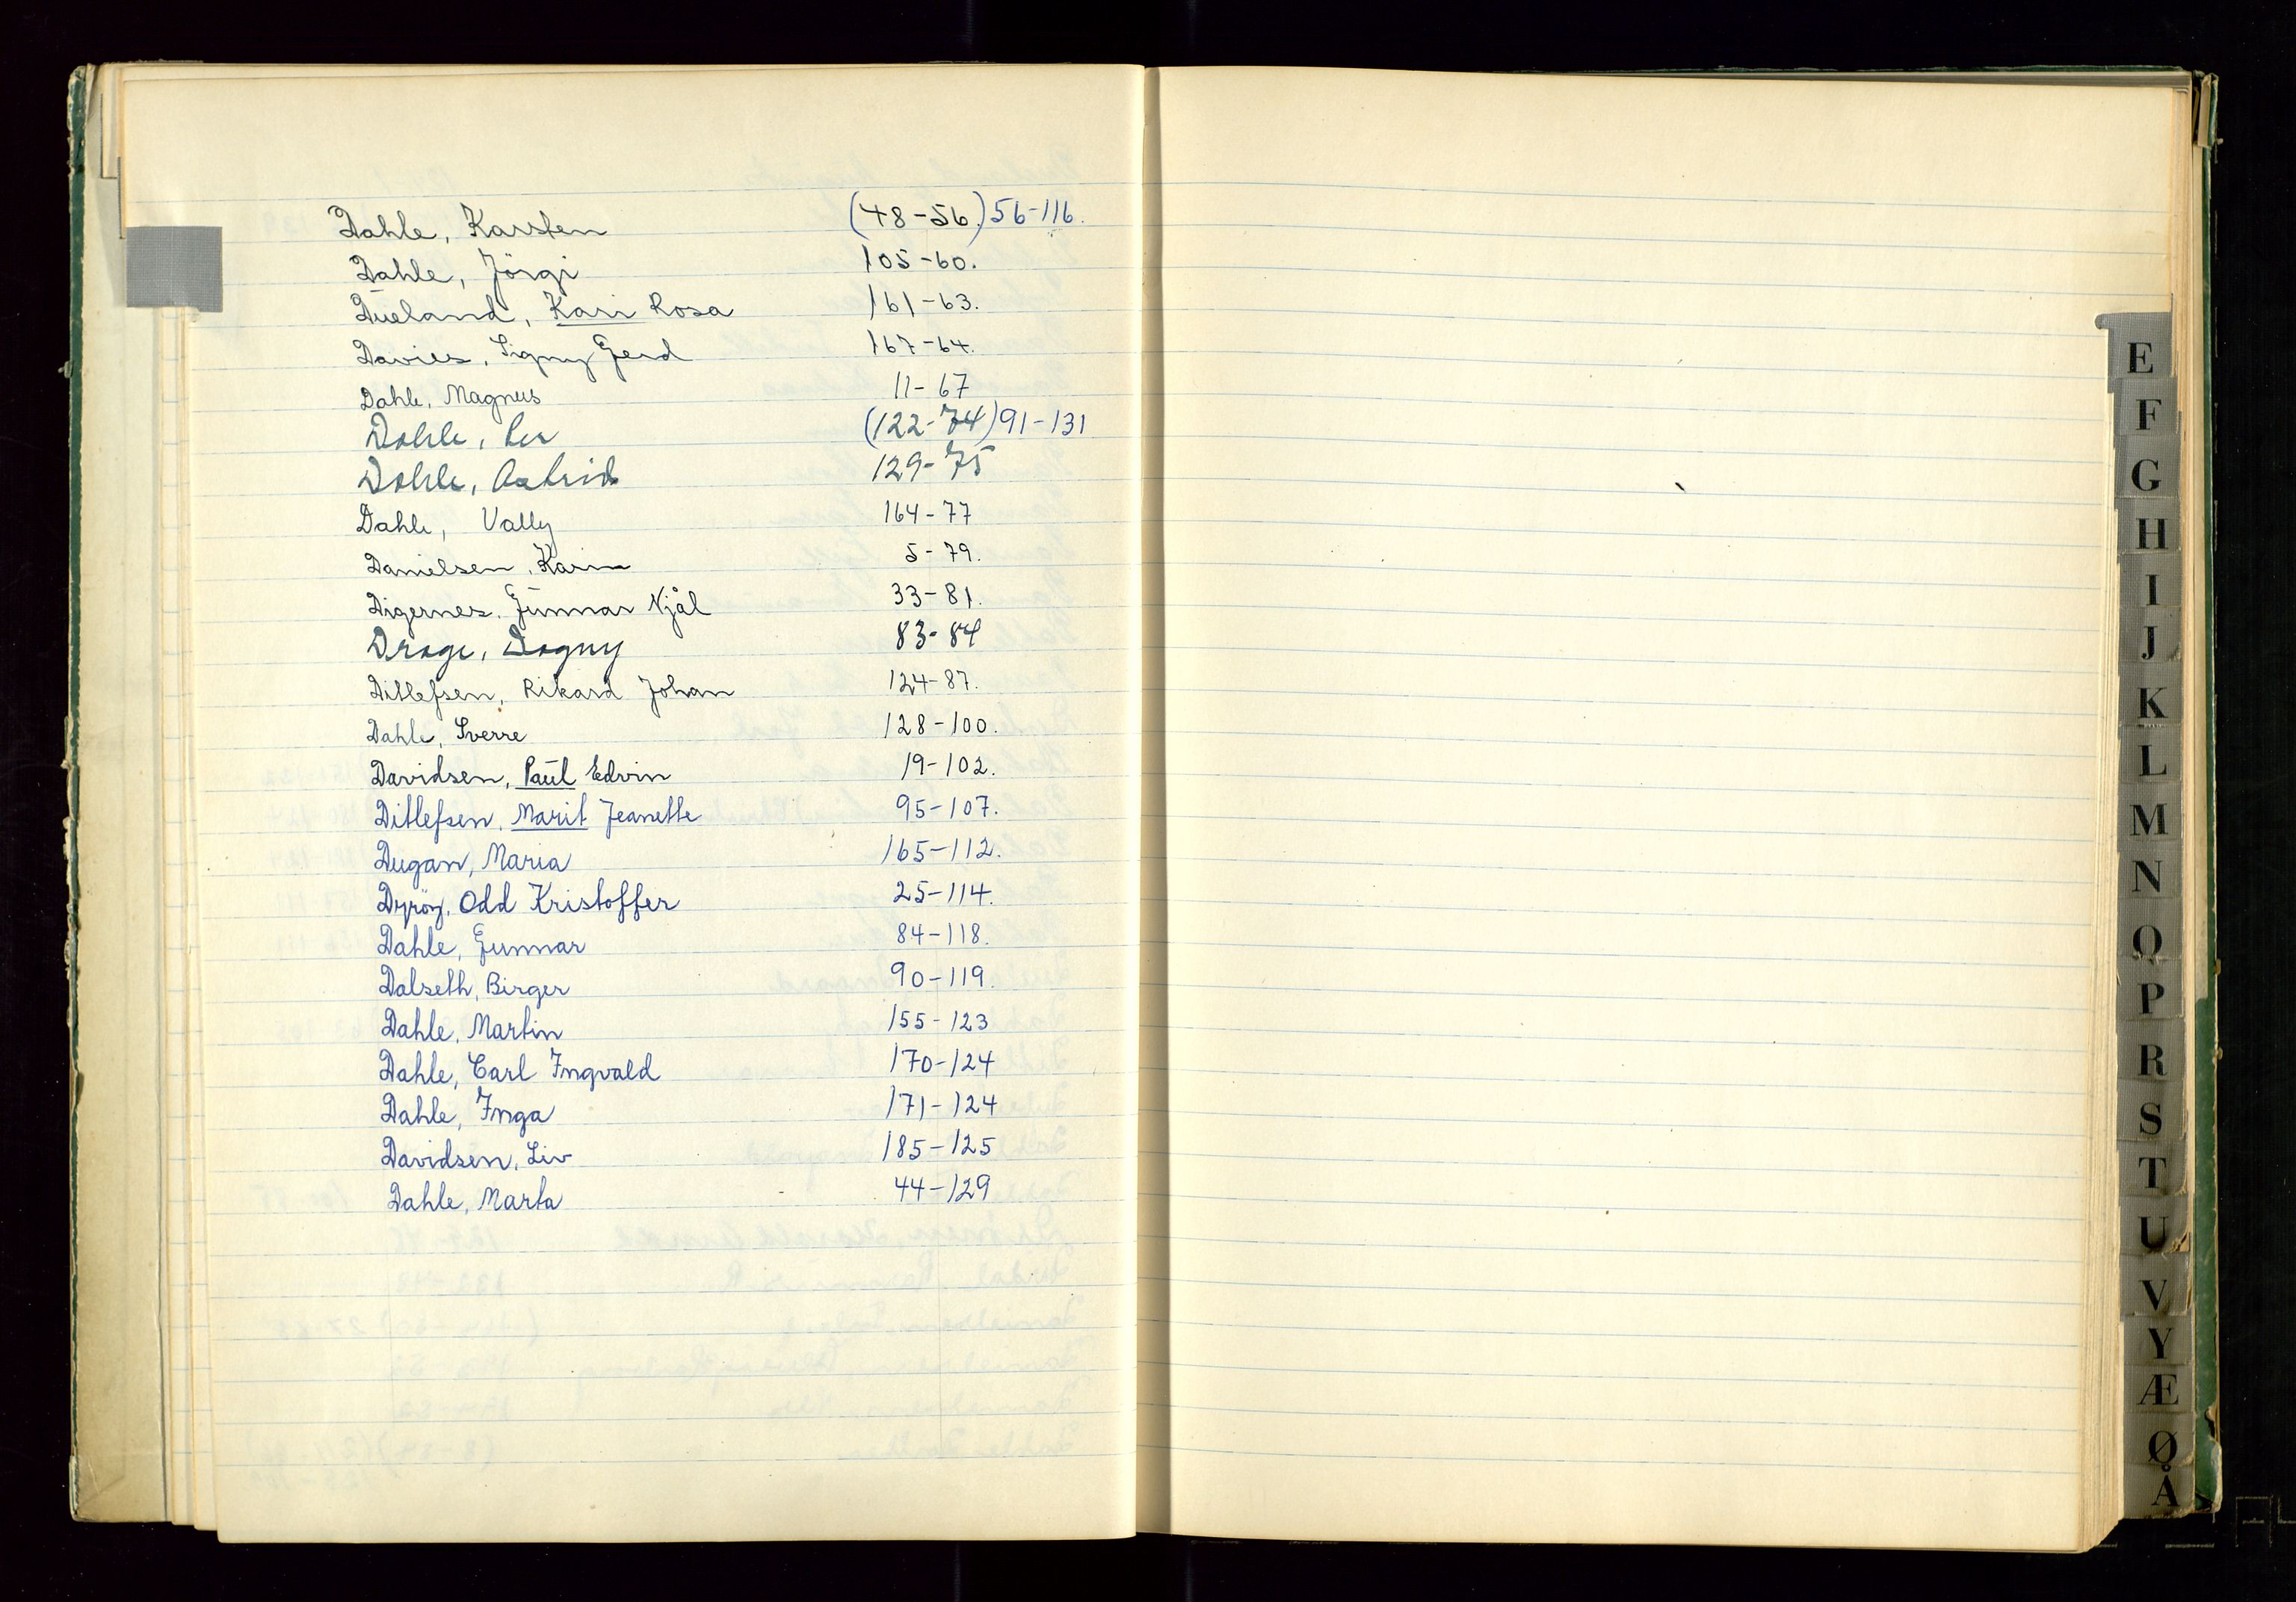 Dahle, Karsten (48-56.) 56-116.
Dahle, Jörgi 105-60.
Dueland, Kari Rosa 161-63.
Davies, Signy Gerd 167-64.
Dahle, Magnus 11-67
Dahle, Per (122-74) 91-131
Dahle, Astrid 129-75
Dahle, Vally 164-77
Danielsen, Karin 5-79.
Digernes, Gunnar Njål 33-81.
Drage, Dagny 83-84
Ditlefsen, Rikard Johan 124-87.
Dahle, Sverre 128-100.
Davidsen, Paul Edvin 19-102.
Ditlefsen, Marit Jeanette 95-107.
Dugan, Maria 165-112.
Dyröy, Odd Kristoffer 25-114.
Dahle, Gunnar 84-118.
Dalseth, Birger 90-119.
Dahle, Martin 155-123
Dahle, Carl Ingvald 170-124
Dahle, Inga 171-124
Davidsen, Liv 185-125
Dahle, Marta 44-129
E
F
G
H
I
J
K
L
M
N
O
P
R
S
T
U
V
Y
Æ
Ø
Å